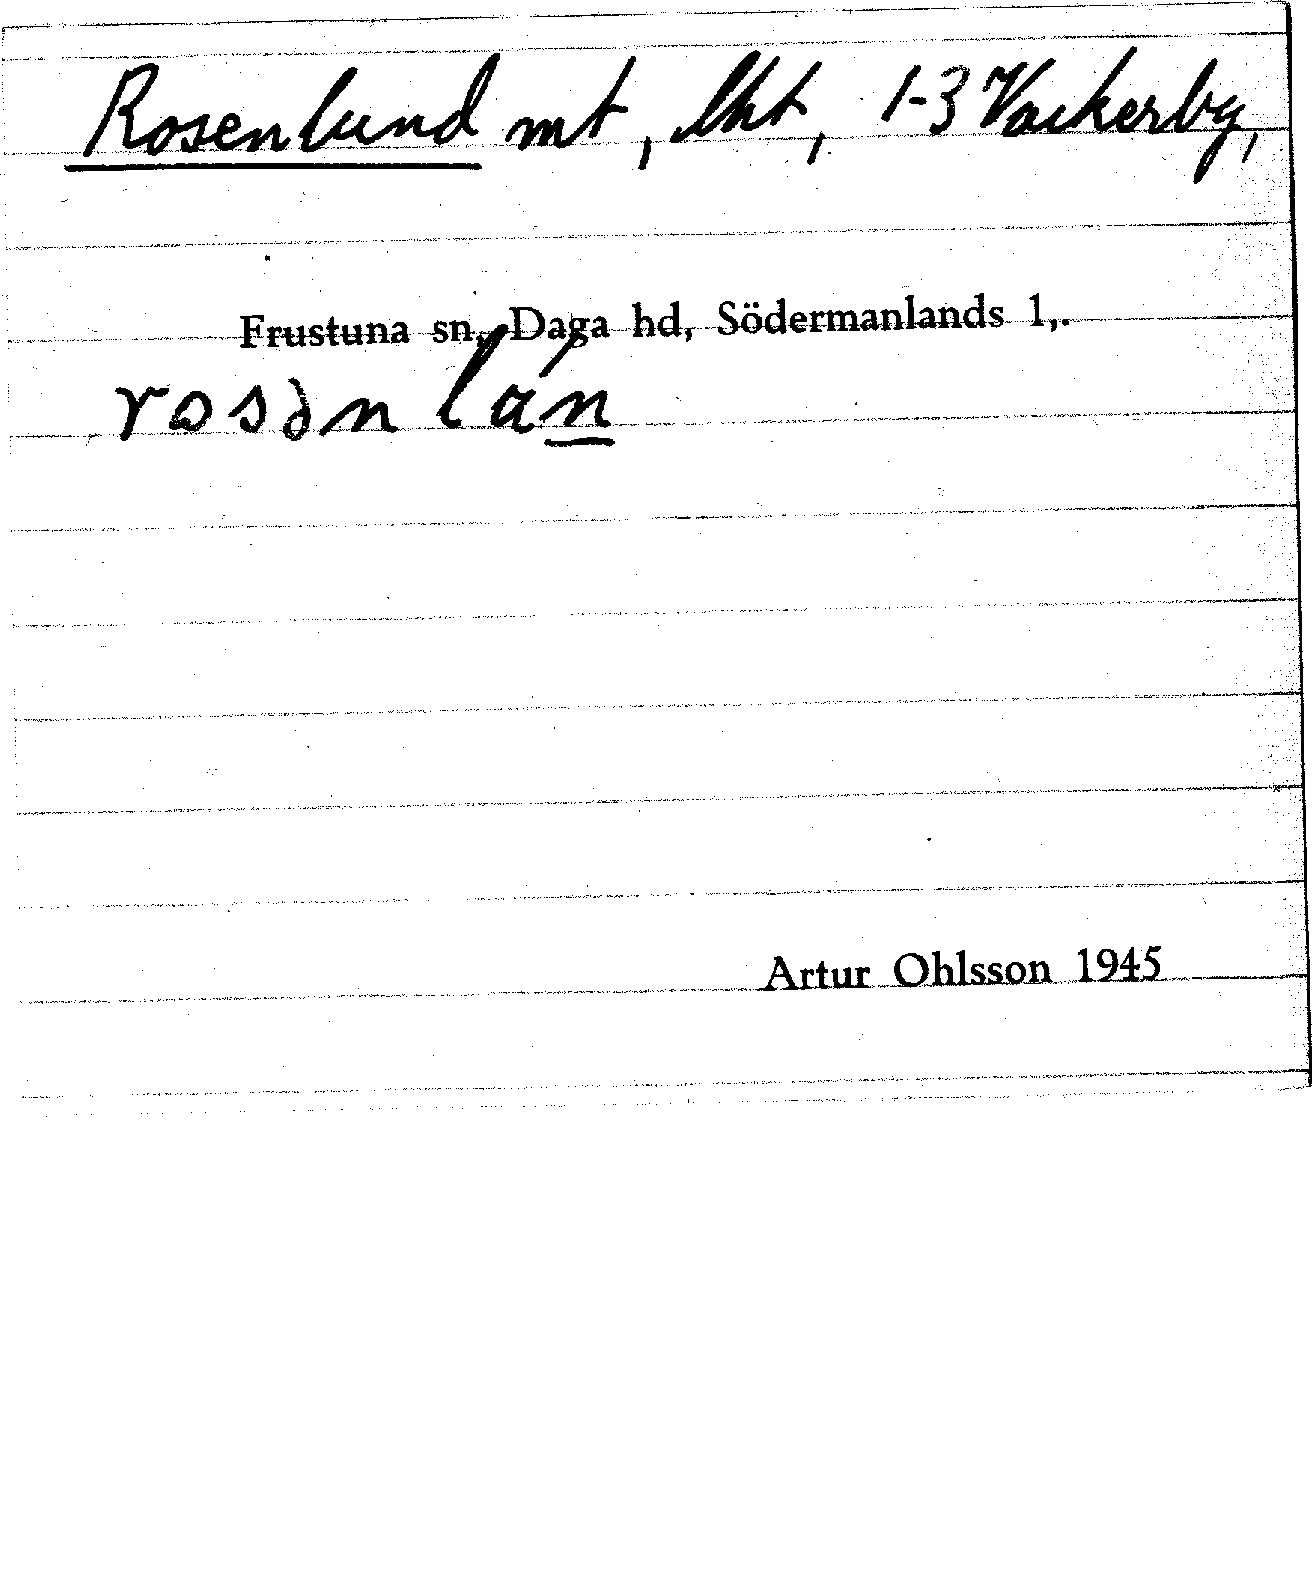 Rosenlund mt, lht, 1-3 Vackerby,
Frustuna sn, Daga hd, Södermanlands l,.
rosənlán
Artur Ohlsson 1945